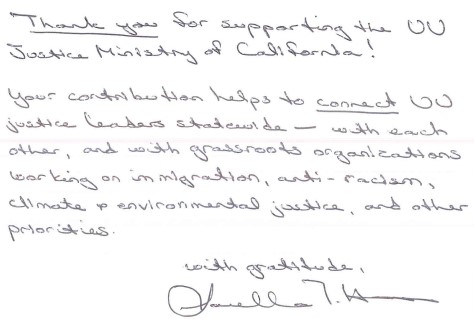 Thank you for supporting the UU
Justice Ministry of California!
Your contribution helps to connect UU
justice leaders statewide — with each
other, and with grassroots organizations
working on immigration, anti-racism,
climate & environmental justice, and other
priorities.
with gratitude,